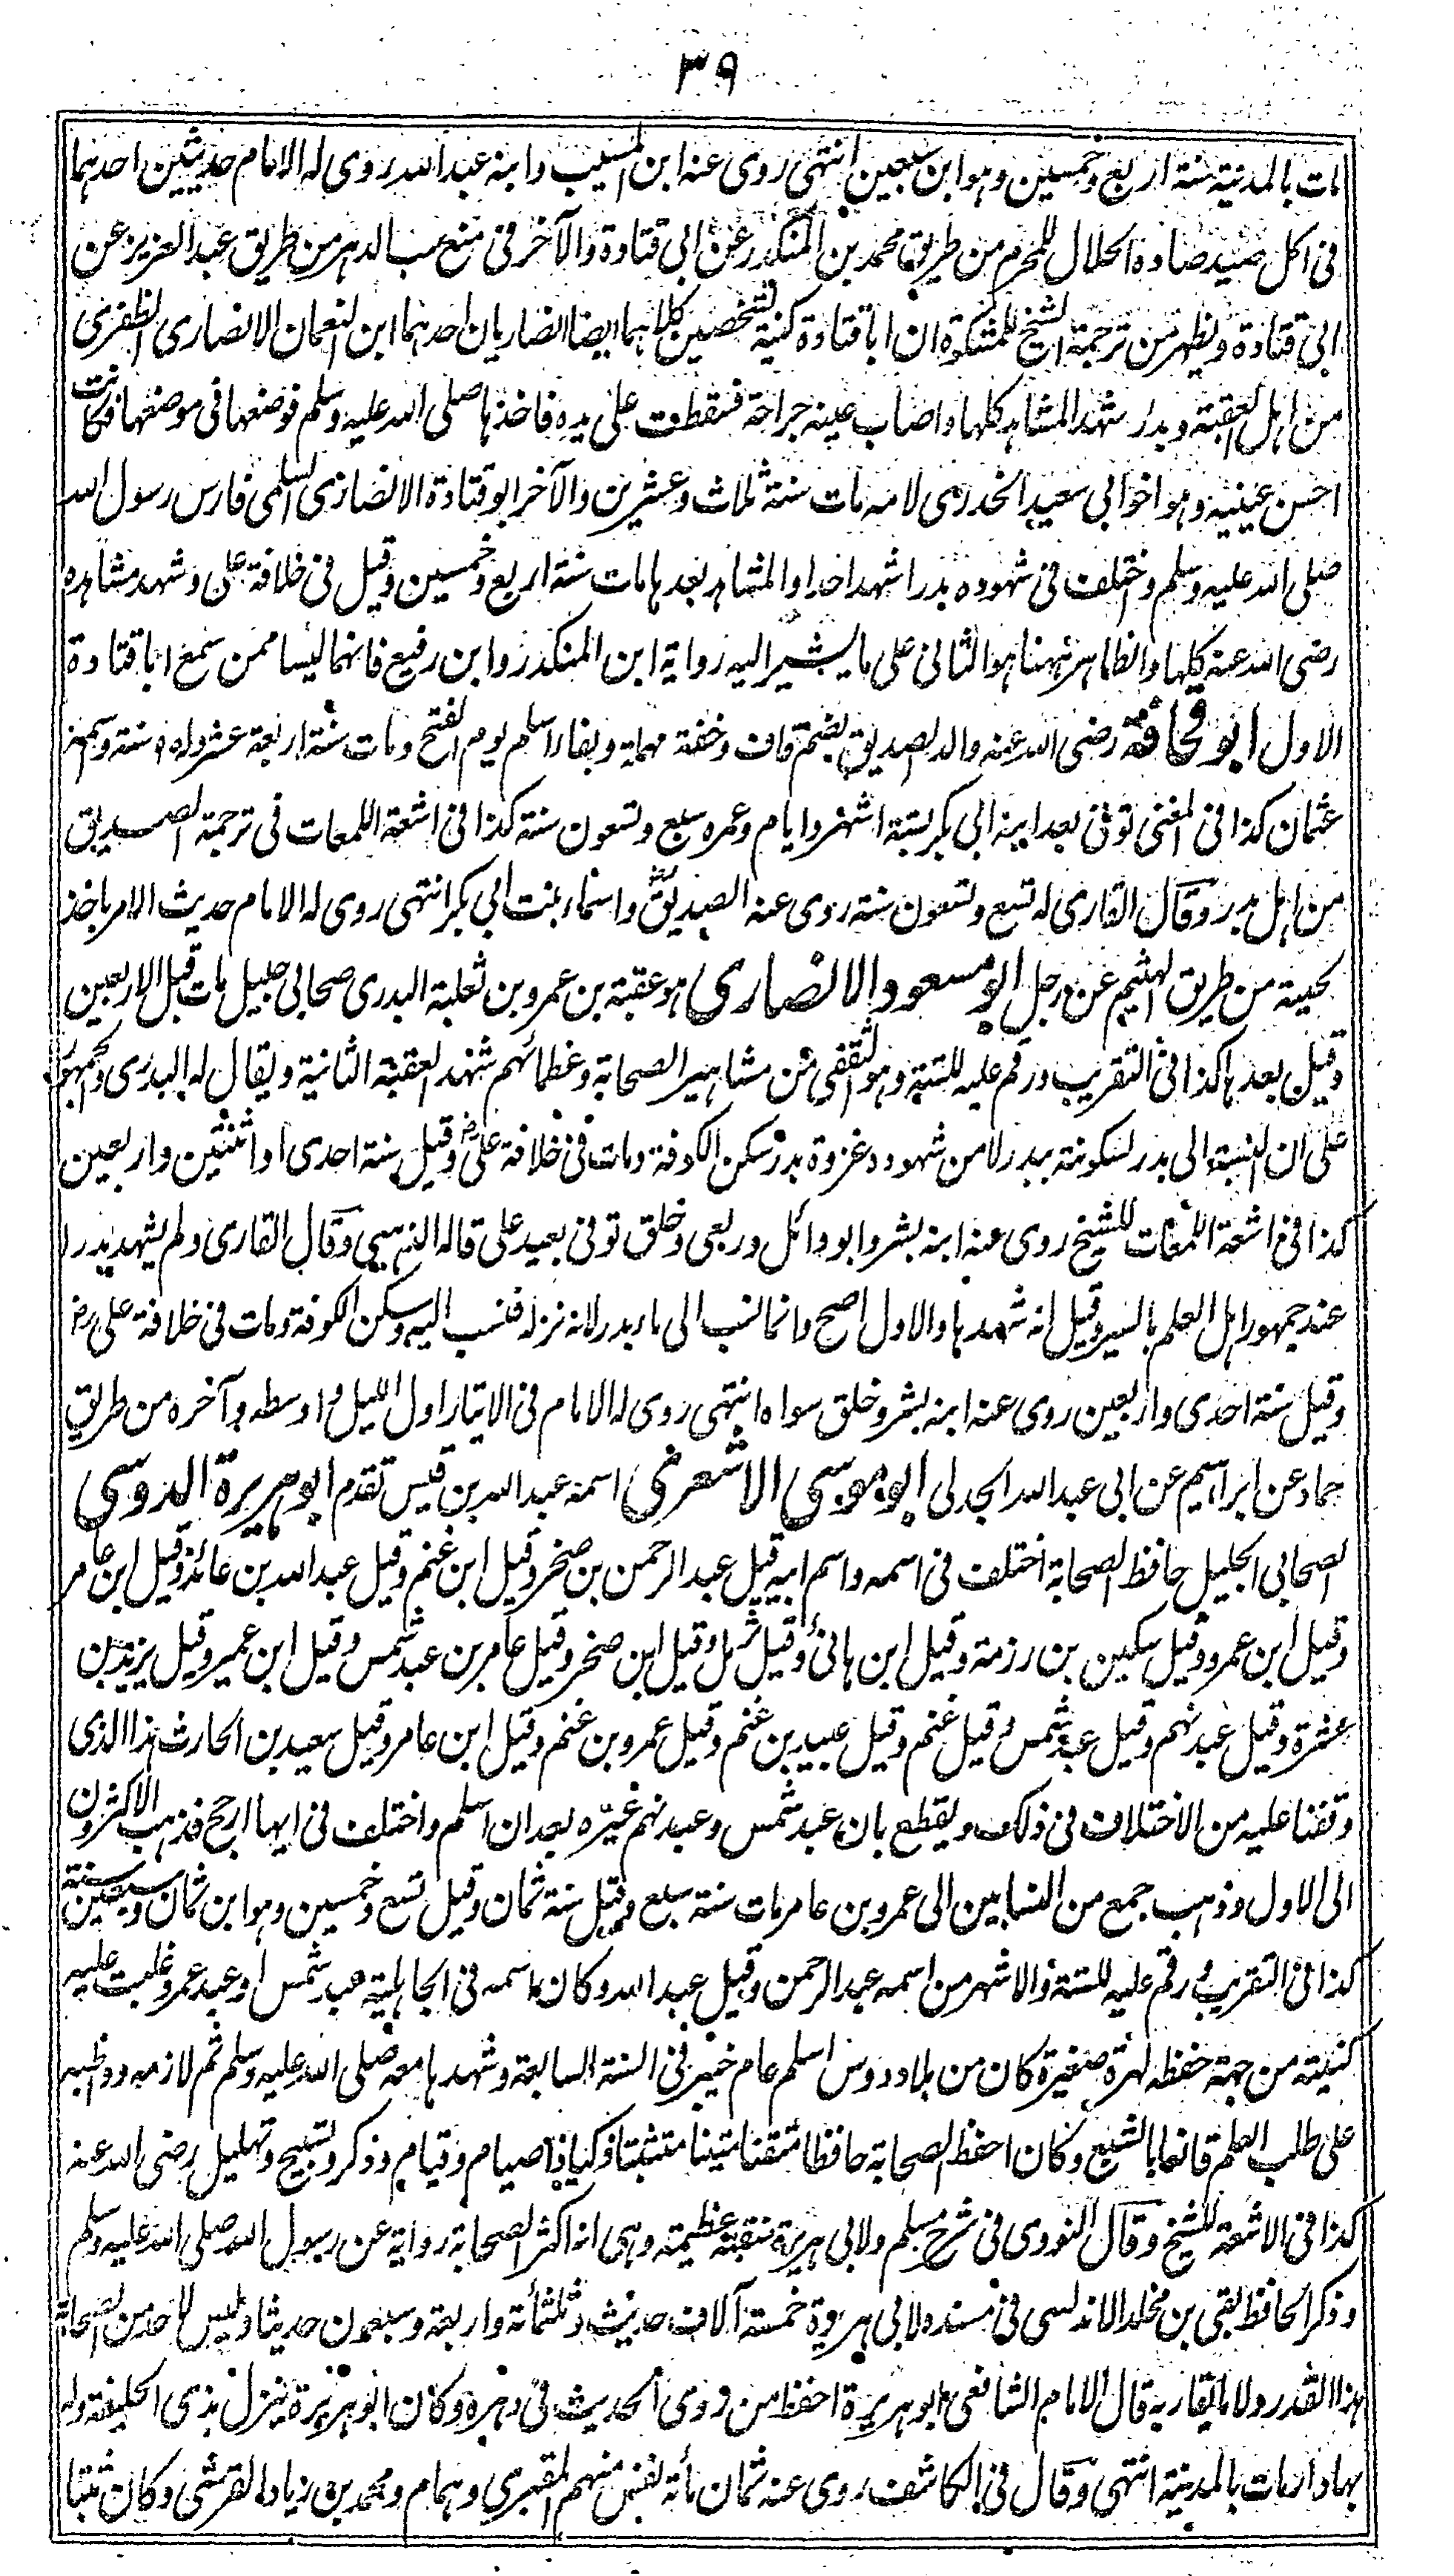 ٣٩
مات بالمدينة سنة اربع وخمسين وهو ابن سبعين انتهى روى عنه ابن المسيب وابنه عبد الله روى له الامام حديثين احدهما
فى اكل صيد صاده الحلال للمحرم من طريق محمد بن المنكدر عن ابى قتادة والآخر فى منع سب الدهر من طريق عبد العزيز عن
ابى قتادة ويظهر من ترجمة الشيخ للمشكوة ان ابا قتادة كنية لشخصين كلاهما ايضا انصاريان احدهما ابن النعمان الانصارى الظفرى
من اهل العقبة وبدر شهد المشاهد كلها واصاب عينه جراحة فسقطت على يده فاخذها صلى الله عليه وسلم فوضعها فى موضعها فكانت
احسن عينيه وهو اخو ابى سعيد الخدرى لامه مات سنة ثلاث وعشرين والآخر ابو قتادة الانصارى السلمى فارس رسول الله
صلى الله عليه وسلم واختلف فى شهوده بدرا شهد احدا والمشاهد بعدها مات سنة اربع وخمسين وقيل فى خلافة على وشهد مشاهده
رضى الله عنه كلها والظاهر ههنا هو الثانى على ما يشير اليه رواية ابن المنكدر وابن رفيع فانهما ليسا ممن سمع ابا قتادة
الاول ابو قحافة رضى الله عنه والد الصديق بضم قاف وخفة مهملة وبفاء اسلم يوم الفتح ومات سنة اربعة عشر وله سنة وسمه
عثمان كذا فى المغنى توفى بعد ابنه ابى بكر بستة اشهر وايام وعمره سبع وتسعون سنة كذا فى اشعة اللمعات فى ترجمة الصديق
من اهل بدر وقال القارى له تسع وتسعون سنة روى عنه الصديق واسماء بنت ابى بكر انتهى روى له الامام حديث الامر باخذ
لحيته من طريق الهيثم عن رجل ابو مسعود الانصارى هو عقبة بن عمرو بن ثعلبة البدرى صحابى جليل مات قبل الاربعين
وقيل بعدها كذا فى التقريب ورقم عليه للستة وهو الثقفى من مشاهير الصحابة وعظمائهم شهد العقبة الثانية ويقال له البدرى والجمهور
على ان النسبة الى بدر لسكونته ببدر لا من شهوده غزوة بدر سكن الكوفة ومات فى خلافة على رض وقيل سنة احدى او اثنتين واربعين
كذا فى اشعة اللمعات للشيخ روى عنه ابنه بشر وابو وائل وربعى وخلق توفى بعيد على قاله الذهبى وقال القارى ولم يشهد بدرا
عند جمهور اهل العلم بالسير وقيل انه شهدها والاول اصح وانما نسب الى ماء بدر لانه نزله فنسب اليه وسكن الكوفة ومات فى خلافة على رض
وقيل سنة احدى واربعين روى عنه ابنه بشر وخلق سواه انتهى روى له الامام فى الايتار اول الليل واوسطه وآخره من طريق
حماد عن ابراهيم عن ابى عبد الله الجدلى ابو موسى الاشعرى اسمه عبد الله بن قيس تقدم ابو هريرة الدوسى
الصحابى الجليل حافظ الصحابة اختلف فى اسمه واسم ابيه قيل عبد الرحمن بن صخر وقيل ابن غنم وقيل عبد الله بن عائذ وقيل ابن عامر
وقيل ابن عمرو وقيل سكين بن رزمة وقيل ابن هانئ وقيل ثرمل وقيل ابن صخر وقيل عامر بن عبد شمس وقيل ابن عمير وقيل يزيد بن
عشرة وقيل عبد نهم وقيل عبد شمس وقيل غنم وقيل عبيد بن غنم وقيل عمرو بن غنم وقيل ابن عامر وقيل سعيد بن الحارث هذا الذى
وقفنا عليه من الاختلاف فى ذلك ويقطع بان عبد شمس وعبد نهم غيره بعد ان اسلم واختلف فى ايها ارجح فذهب الاكثرون
الى الاول وذهب جمع من النسابين الى عمرو بن عامر مات سنة سبع وقيل سنة ثمان وقيل تسع وخمسين وهو ابن ثمان وسبعين سنة
كذا فى التقريب ورقم عليه للستة والاشهر من اسمه عبد الرحمن وقيل عبد الله وكان اسمه فى الجاهلية عبد شمس او عبد عمرو غلبت عليه
كنيته من جهة حفظه لهرة صغيرة كان من بلاد دوس اسلم عام خيبر فى السنة السابعة وشهدها معه صلى الله عليه وسلم ثم لازمه وواظبه
على طلب العلم قانعا بالشبع وكان احفظ الصحابة حافظا متقنا متينا متثبتا وذكيا ذا صيام وقيام وذكر وتسبيح وتهليل رضى الله عنه
كذا فى الاشعة للشيخ وقال النووى فى شرح مسلم ولابى هريرة منقبة عظيمة وهى انه اكثر الصحابة رواية عن رسول الله صلى الله عليه وسلم
وذكر الحافظ بقى بن مخلد الاندلسى فى مسنده لابى هريرة خمسة آلاف حديث وثلثمائة واربعة وسبعون حديثا وليس لاحد من الصحابة
هذا القدر ولا ما يقاربه قال الامام الشافعى ابو هريرة احفظ من روى الحديث فى دهره وكان ابو هريرة ينزل بذى الحليفة وله
بها دار مات بالمدينة انتهى وقال فى الكاشف روى عنه ثمان مأة نفس منهم المقبرى وهمام ومحمد بن زياد القرشى وكان ثبتا